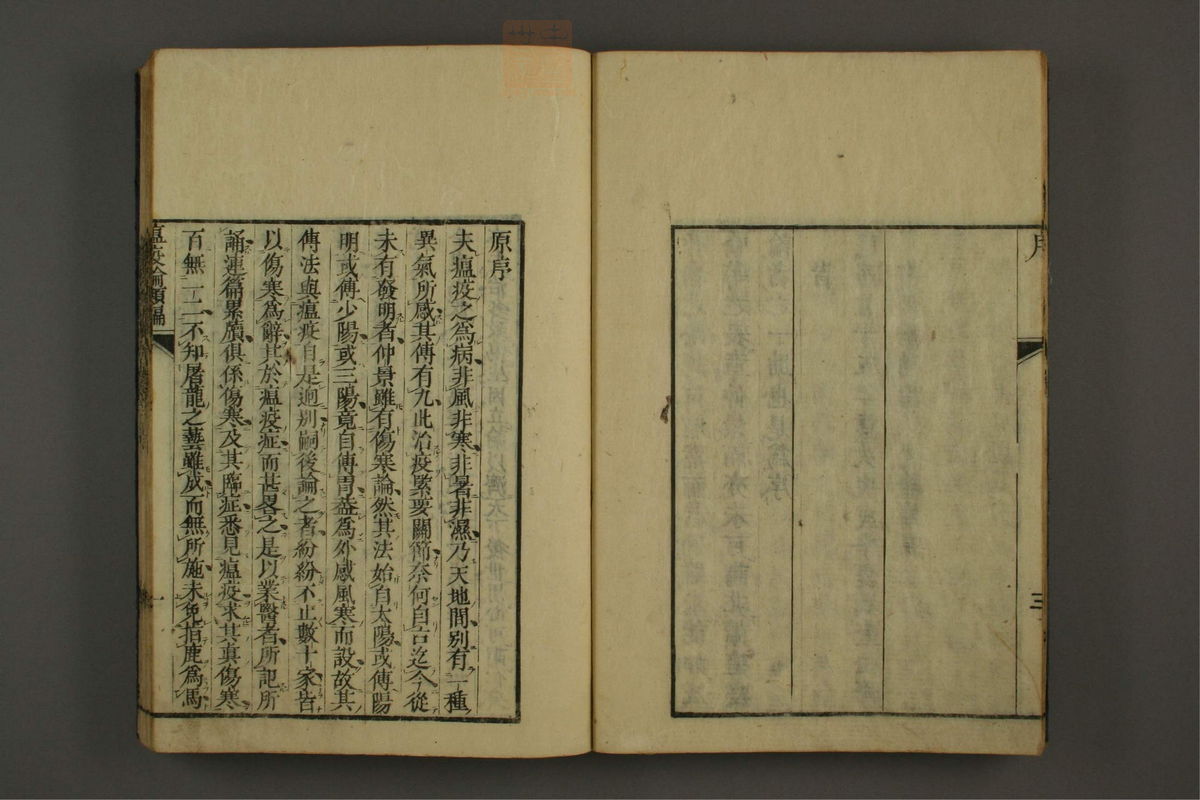 序
三
原序
夫瘟疫之爲病非風非寒非暑非濕乃天地間別有一種
異氣所感其傳有九此治疫緊要關節奈何自古迄今從
未有發明者仲景雖有傷寒論然其法始自太陽或傳陽
明或傳少陽或三陽竟自傳胃葢爲外感風寒而設故其
傳法與瘟疫自是迥別嗣後論之者紛紛不止數十家皆
以傷寒爲辭其於瘟疫症而甚畧之是以業醫者所記所
誦連篇累牘俱係傷寒及其臨症悉見瘟疫求其真傷寒
百無一二不知屠龍之藝雖成而無所施未免指鹿爲馬
瘟疫論類編
一